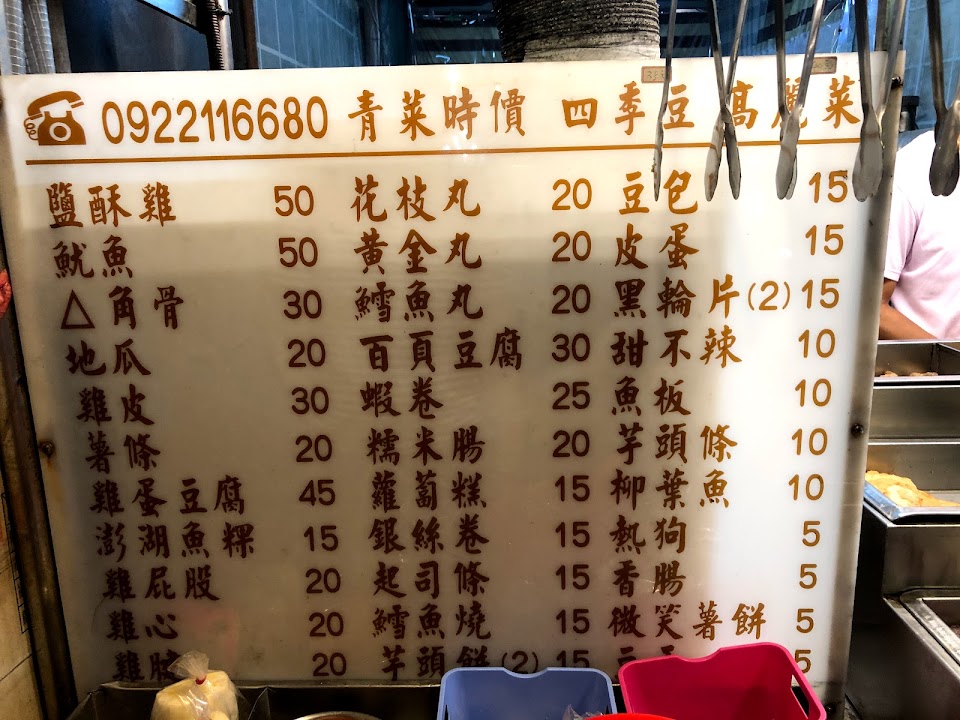 0922116680 青菜時價 四季豆 高麗菜
鹽酥雞 50 花枝丸 20 豆包 15
魷魚 50 黃金丸 20 皮蛋 15
△角骨 30 鱈魚丸 20 黑輪片(2) 15
地瓜 20 百頁豆腐 30 甜不辣 10
雞皮 30 蝦卷 25 魚板 10
薯條 20 糯米腸 20 芋頭條 10
雞蛋豆腐 45 蘿蔔糕 15 柳葉魚 10
澎湖魚粿 15 銀絲卷 15 熱狗 5
雞屁股 20 起司條 15 香腸 5
雞心 20 鱈魚燒 15 微笑薯餅 5
雞胗 20 芋頭餅(2) 15 豆 5